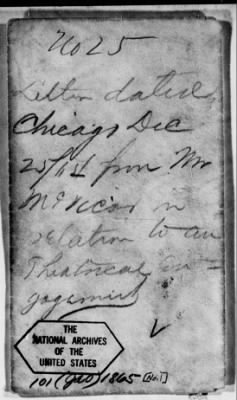 No 25
Letter dated
Chicago Dec
25/64 from Mr
McVicar in
relation to an
Theatrical En-
gagement
THE
NATIONAL ARCHIVES
OF THE
UNITED STATES
101 (JAO) 1865